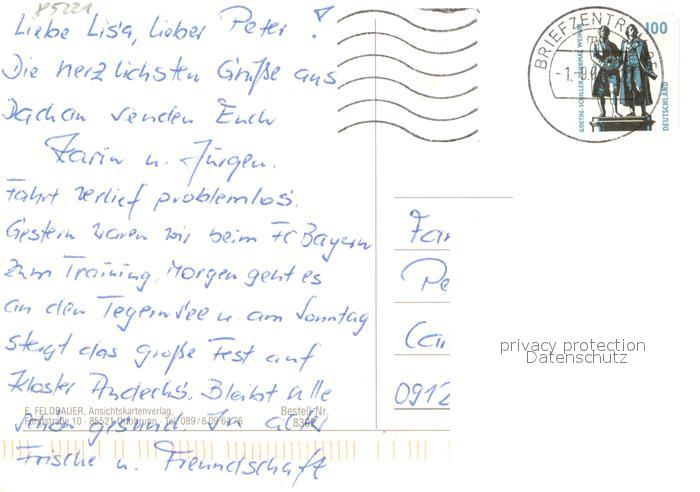 85221
Liebe Lisa, lieber Peter!
Die herzlichsten Grüße aus
Dachau senden Euch
Karin u. Jürgen.
Fahrt verlief problemlos.
Gestern waren wir beim FC Bayern
zum Training, Morgen geht es
an den Tegernsee u. am Sonntag
steigt das große Fest auf
Kloster Andechs. Bleibt alle
schön gesund. In alter
Frische u. Freundschaft
E. FELDBAUER, Ansichtskartenverlag,
Forststraße 10 - 85521 Ottobrunn, Tel. 089/6 09 64 76
Bestell-Nr.
8302
BRIEFZENTRUM
100
GOETHE-SCHILLER-DENKMAL WEIMAR
DEUTSCHLAND
Fam
Pe
Ca
0912
privacy protection
Datenschutz